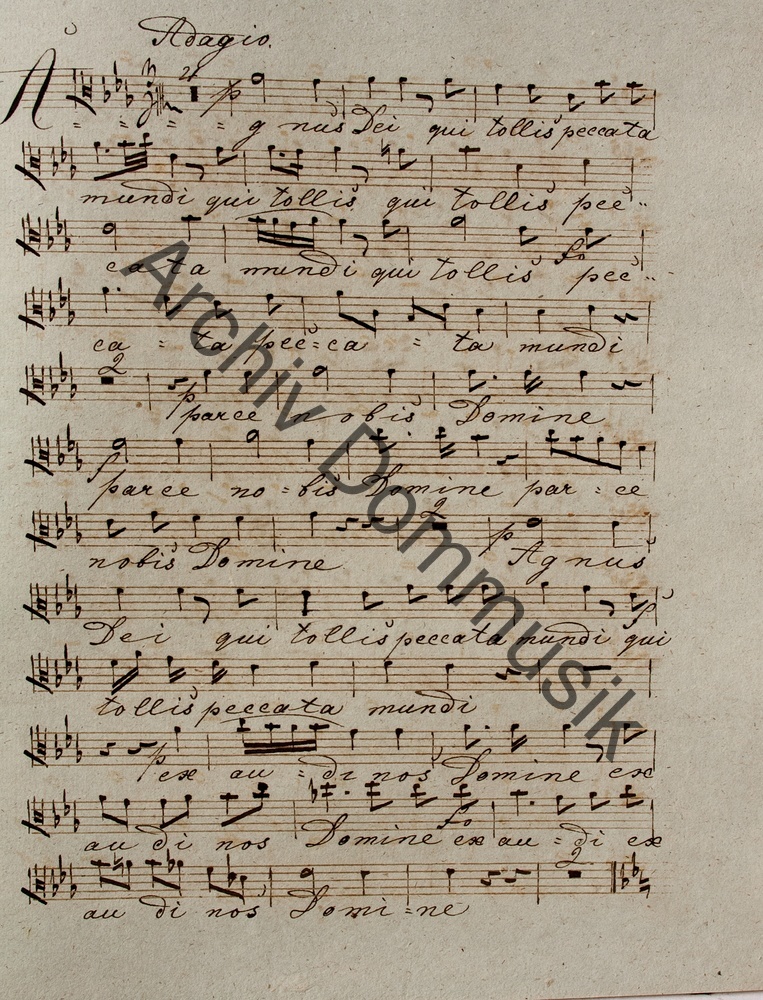 Adagio.
A - - - - gnus Dei qui tollis peccata
mundi qui tollis qui tollis pec-
cata mundi qui tollis fo pec-
ca - ta pec-ca - ta mundi
2 p parce nobis Domine
f parce no-bis Domine par-ce
nobis Domine 2 p Agnus
Dei qui tollis peccata mundi qui
tollis peccata mundi
p ex au-di nos Domine ex
au di nos Domine fo ex au-di ex
au di nos Domi-ne 2
Archiv Dommusik